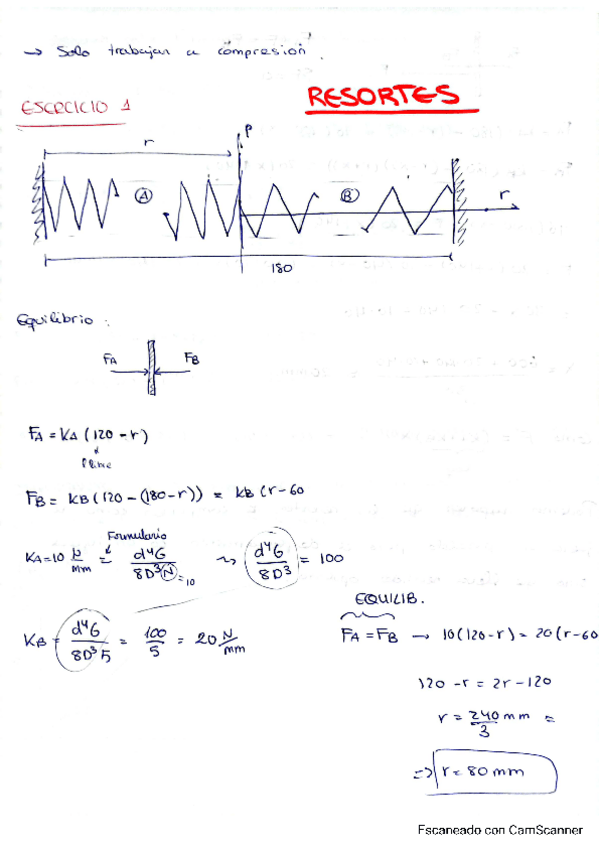 → Solo trabajan a compresión.
RESORTES
EJERCICIO 1
r
P
A
B
r
180
Equilibrio :
FA FB
FA = KA (120 - r)
FB = KB (120 - (180 - r)) = KB (r - 60
KA = 10 N/mm = Formulario d⁴G/8D³N =10 ~> d⁴G/8D³ = 100
EQUILIB.
KB = d⁴G/8D³5 = 100/5 = 20 N/mm
FA = FB → 10(120-r) = 20(r-60
120 - r = 2r - 120
r = 240/3 mm =
=> r = 80 mm
Escaneado con CamScanner